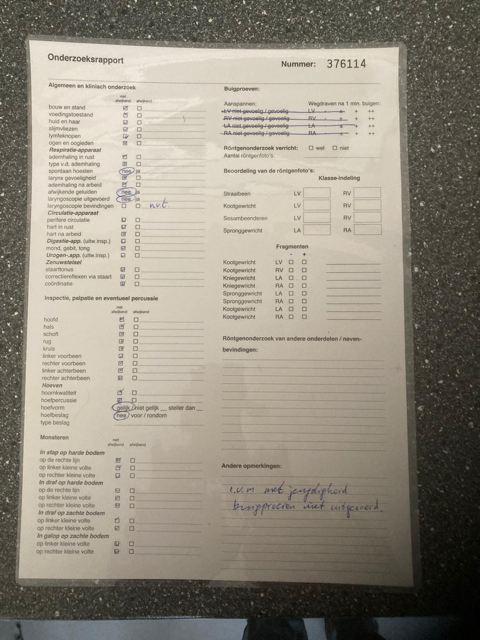 Onderzoeksrapport
Nummer: 376114
Algemeen en klinisch onderzoek
niet afwijkend afwijkend
bouw en stand
voedingstoestand
huid en haar
slijmvliezen
lymfeknopen
ogen en oogleden
Respiratie-apparaat
ademhaling in rust
type v.d. ademhaling
spontaan hoesten nee ja
larynx gevoeligheid
ademhaling na arbeid
afwijkende geluiden nee ja
laryngoscopie uitgevoerd nee ja
laryngoscopie bevindingen nvt.
Circulatie-apparaat
perifere circulatie
hart in rust
hart na arbeid
Digestie-app. (uitw.insp.)
mond, gebit, tong
Urogen.-app. (uitw.insp.)
Zenuwstelsel
staarttonus
correctiereflexen via staart
coördinatie
Inspectie, palpatie en eventueel percussie
niet afwijkend afwijkend
hoofd
hals
schoft
rug
kruis
linker voorbeen
rechter voorbeen
linker achterbeen
rechter achterbeen
Hoeven
hoornkwaliteit
hoefpercussie
hoefvorm gelijk / niet gelijk __ steiler dan __
hoefbeslag nee / voor / rondom
type beslag
Monsteren
niet afwijkend afwijkend
In stap op harde bodem
op de rechte lijn
op linker kleine volte
op rechter kleine volte
In draf op harde bodem
op de rechte lijn
op linker kleine volte
op rechter kleine volte
In draf op zachte bodem
op linker kleine volte
op rechter kleine volte
In galop op zachte bodem
op linker kleine volte
op rechter kleine volte
Buigproeven:
Aaropannen: Wegdraven na 1 min. buigen:
LV niet gevoelig / gevoelig LV - + ++
RV niet gevoelig / gevoelig RV - + ++
LA niet gevoelig / gevoelig LA - + ++
RA niet gevoelig / gevoelig RA - + ++
Röntgenonderzoek verricht: wel niet
Aantal röntgenfoto's:
Beoordeling van de röntgenfoto's:
Klasse-indeling
Straalbeen LV RV
Kootgewricht LV RV
Sesambeenderen LV RV
Spronggewricht LA RA
Fragmenten
- +
Kootgewricht LV
Kootgewricht RV
Kniegewricht LA
Kniegewricht RA
Spronggewricht LA
Spronggewricht RA
Kootgewricht LA
Kootgewricht RA
Röntgenonderzoek van andere onderdelen / neven-
bevindingen:
Andere opmerkingen:
i.v.m met jeugdigheid
buigproeven niet uitgevoerd.